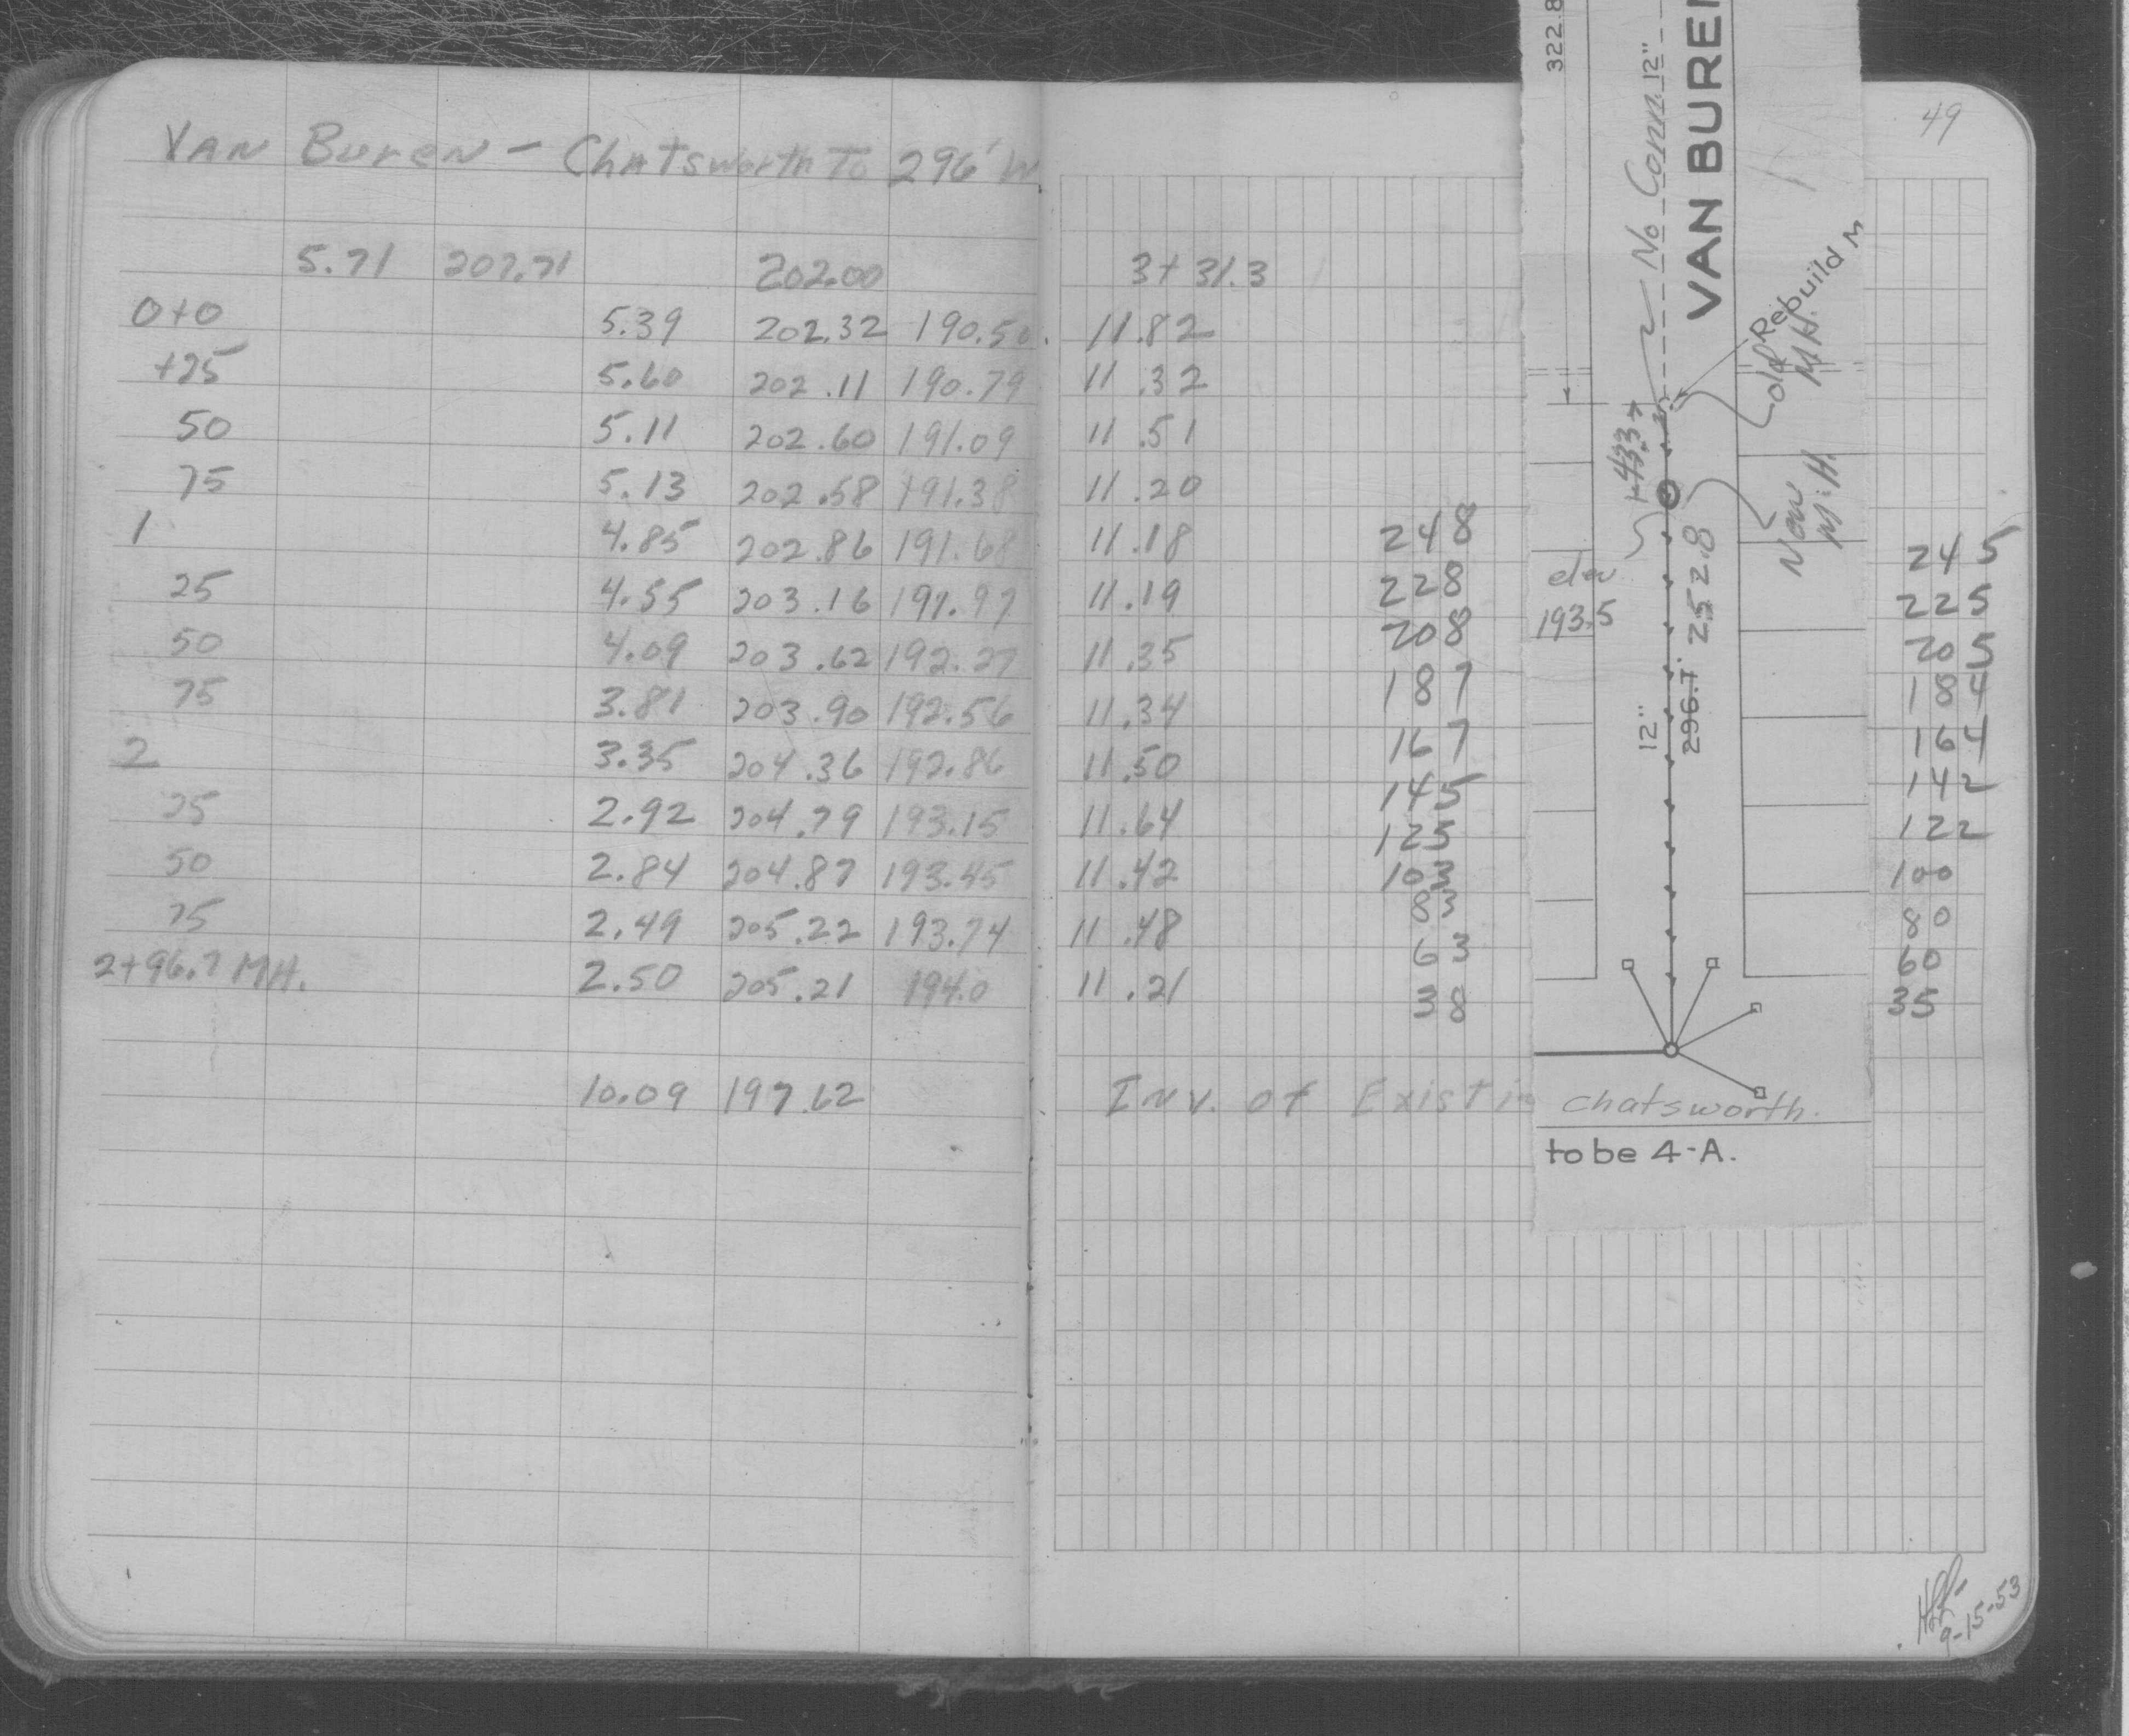 49
VAN BUREN - Chatsworth To 296' W
5.71 207.71 202.00 3+31.3
0+0 5.39 202.32 190.50 11.82
+25 5.60 202.11 190.79 11.32
50 5.11 202.60 191.09 11.51
75 5.13 202.58 191.38 11.20
1 4.85 202.86 191.68 11.18
25 4.55 203.16 191.97 11.19
50 4.09 203.62 192.27 11.35
75 3.81 203.90 192.56 11.34
2 3.35 204.36 192.86 11.50
25 2.92 204.79 193.15 11.64
50 2.84 204.87 193.45 11.42
75 2.49 205.22 193.74 11.48
2+96.7 MH. 2.50 205.21 194.0 11.21
10.09 197.62 Inv. of Existin
248
228
208
187
167
145
125
103
83
63
38
322.8
No Conn. 12"
VAN BUREN
Rebuild M
old M.H.
+43.7
New M.H.
elev
193.5
252.8
12"
296.7
Chatsworth.
to be 4-A.
245
225
205
184
164
142
122
100
80
60
35
9-15-53